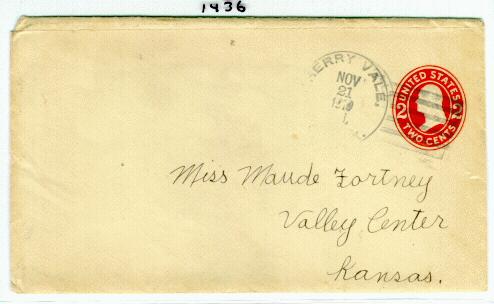 1436
BERRY VALE,
NOV
21
UNITED STATES
2 2
TWO CENTS
Miss Maude Fortney
Valley Center
Kansas.